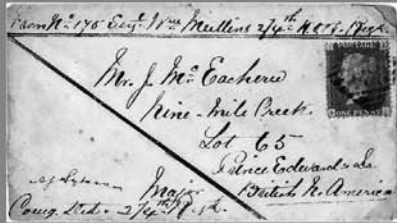 From No 175 Sergt Wm Mullins 2/4th K.O.R. Regt
POSTAGE
ONE PENNY
Mr. J. McEachern
Nine-Mile Creek
Lot 65
Prince Edward's Is.
British N. America
Major
Comg Det. 2/4th R.